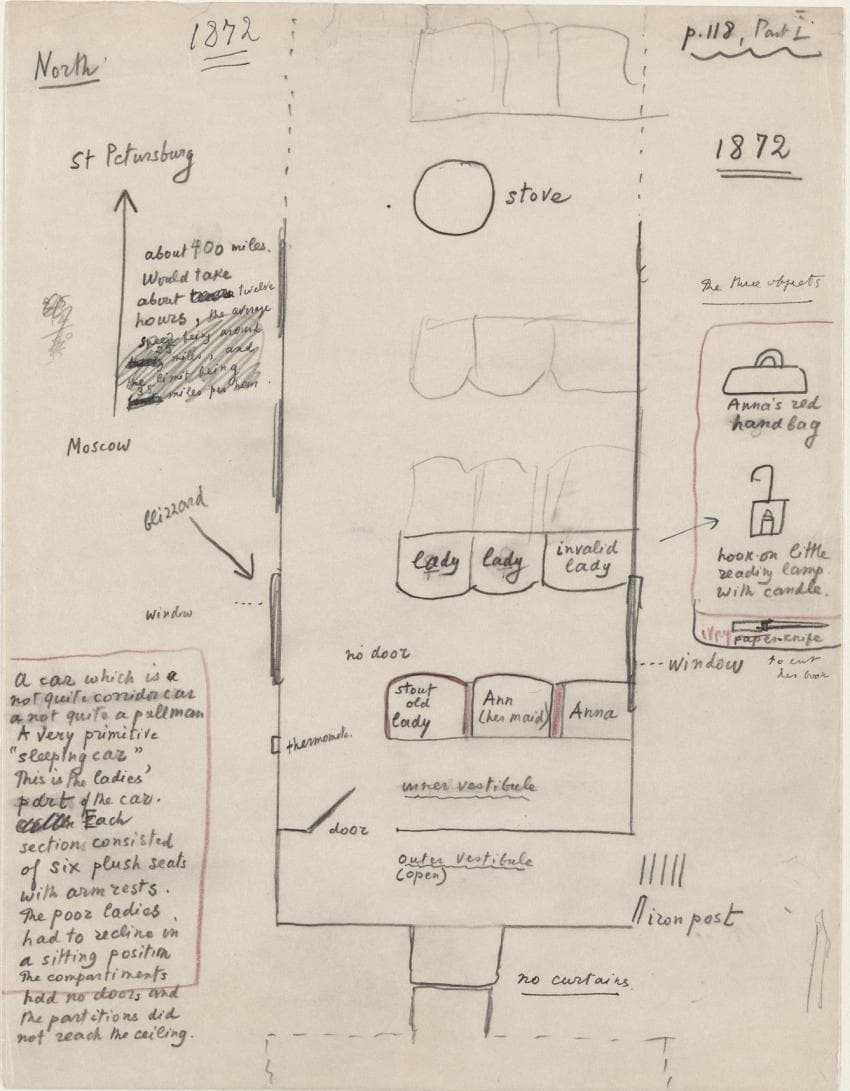 1872
p.118, Part I
North
St Petursburg
1872
stove
about 400 miles.
Would take
about twelve
hours, the average
speed being around
miles and
the limit being
35 miles per hour.
The three objects
Anna's red
handbag
Moscow
blizzard
hook-on little
reading lamp
with candle.
lady
lady
invalid
lady
window
ivory paper-knife
to cut
her book
no door
window
a car which is a
not quite corridor car
a not quite a pullman
A very primitive
"sleeping car"
This is the ladies'
part of the car.
Each
section consisted
of six plush seats
with arm rests.
The poor ladies
had to recline in
a sitting position
The compartiments
had no doors and
the partitions did
not reach the ceiling.
stout
old
lady
Ann
(her maid)
Anna
thermomete.
inner vestibule
door
outer vestibule
(open)
iron post
no curtains